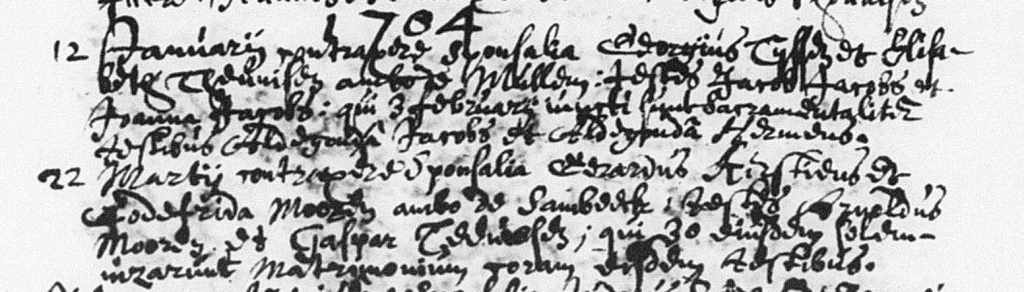 1704
12 Januarÿ contraxere sponsalia Georgius Tyssen et Elisa-
beth Theunissen ambo de Mullem; testes Jacob Jacobs et
Joanna Jacobs; qui 3 februarÿ iuncti sunt sacramentaliter
testibus Aldegonda Jacobs et Aldegunda Hermens.
22 Martÿ contraxere sponsalia Gerardus Kirstiens et
Godefrida Mooren ambo de Sambeeck; testes Arnoldus
Mooren et Caspar Theunissen; qui 30 eiusdem solem-
nizarunt Matrimonium coram eisdem testibus.